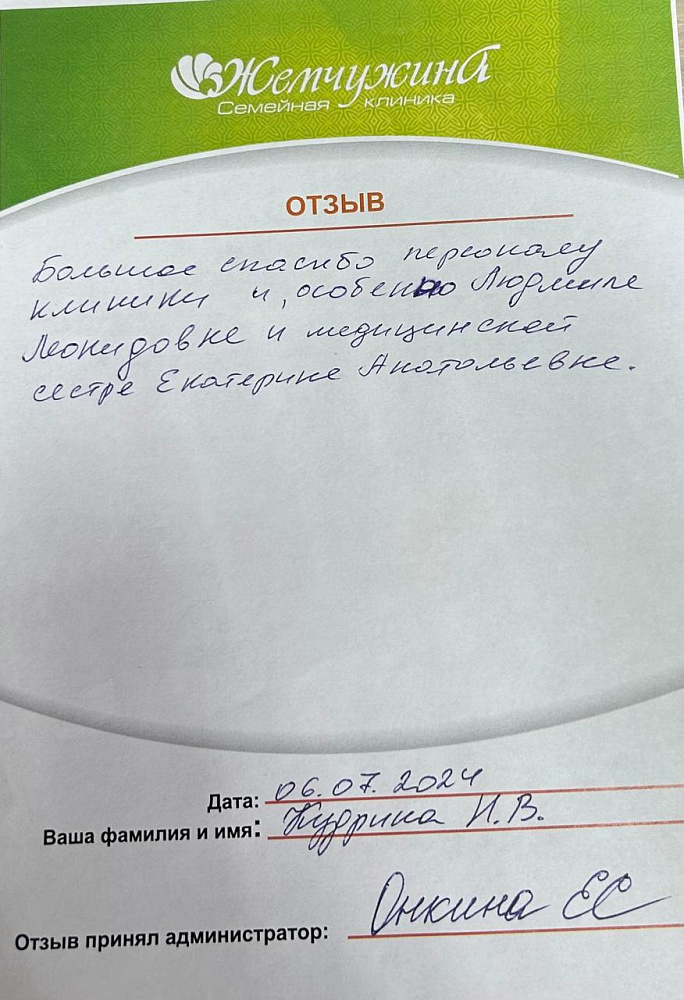 Жемчужина
Семейная клиника
ОТЗЫВ
Большое спасибо персоналу
клиники и, особенно Людмиле
Леонидовне и медицинской
сестре Екатерине Анатольевне.
Дата: 06.07.2024
Ваша фамилия и имя: Кудрина Н.В.
Отзыв принял администратор: Онкина ЕС